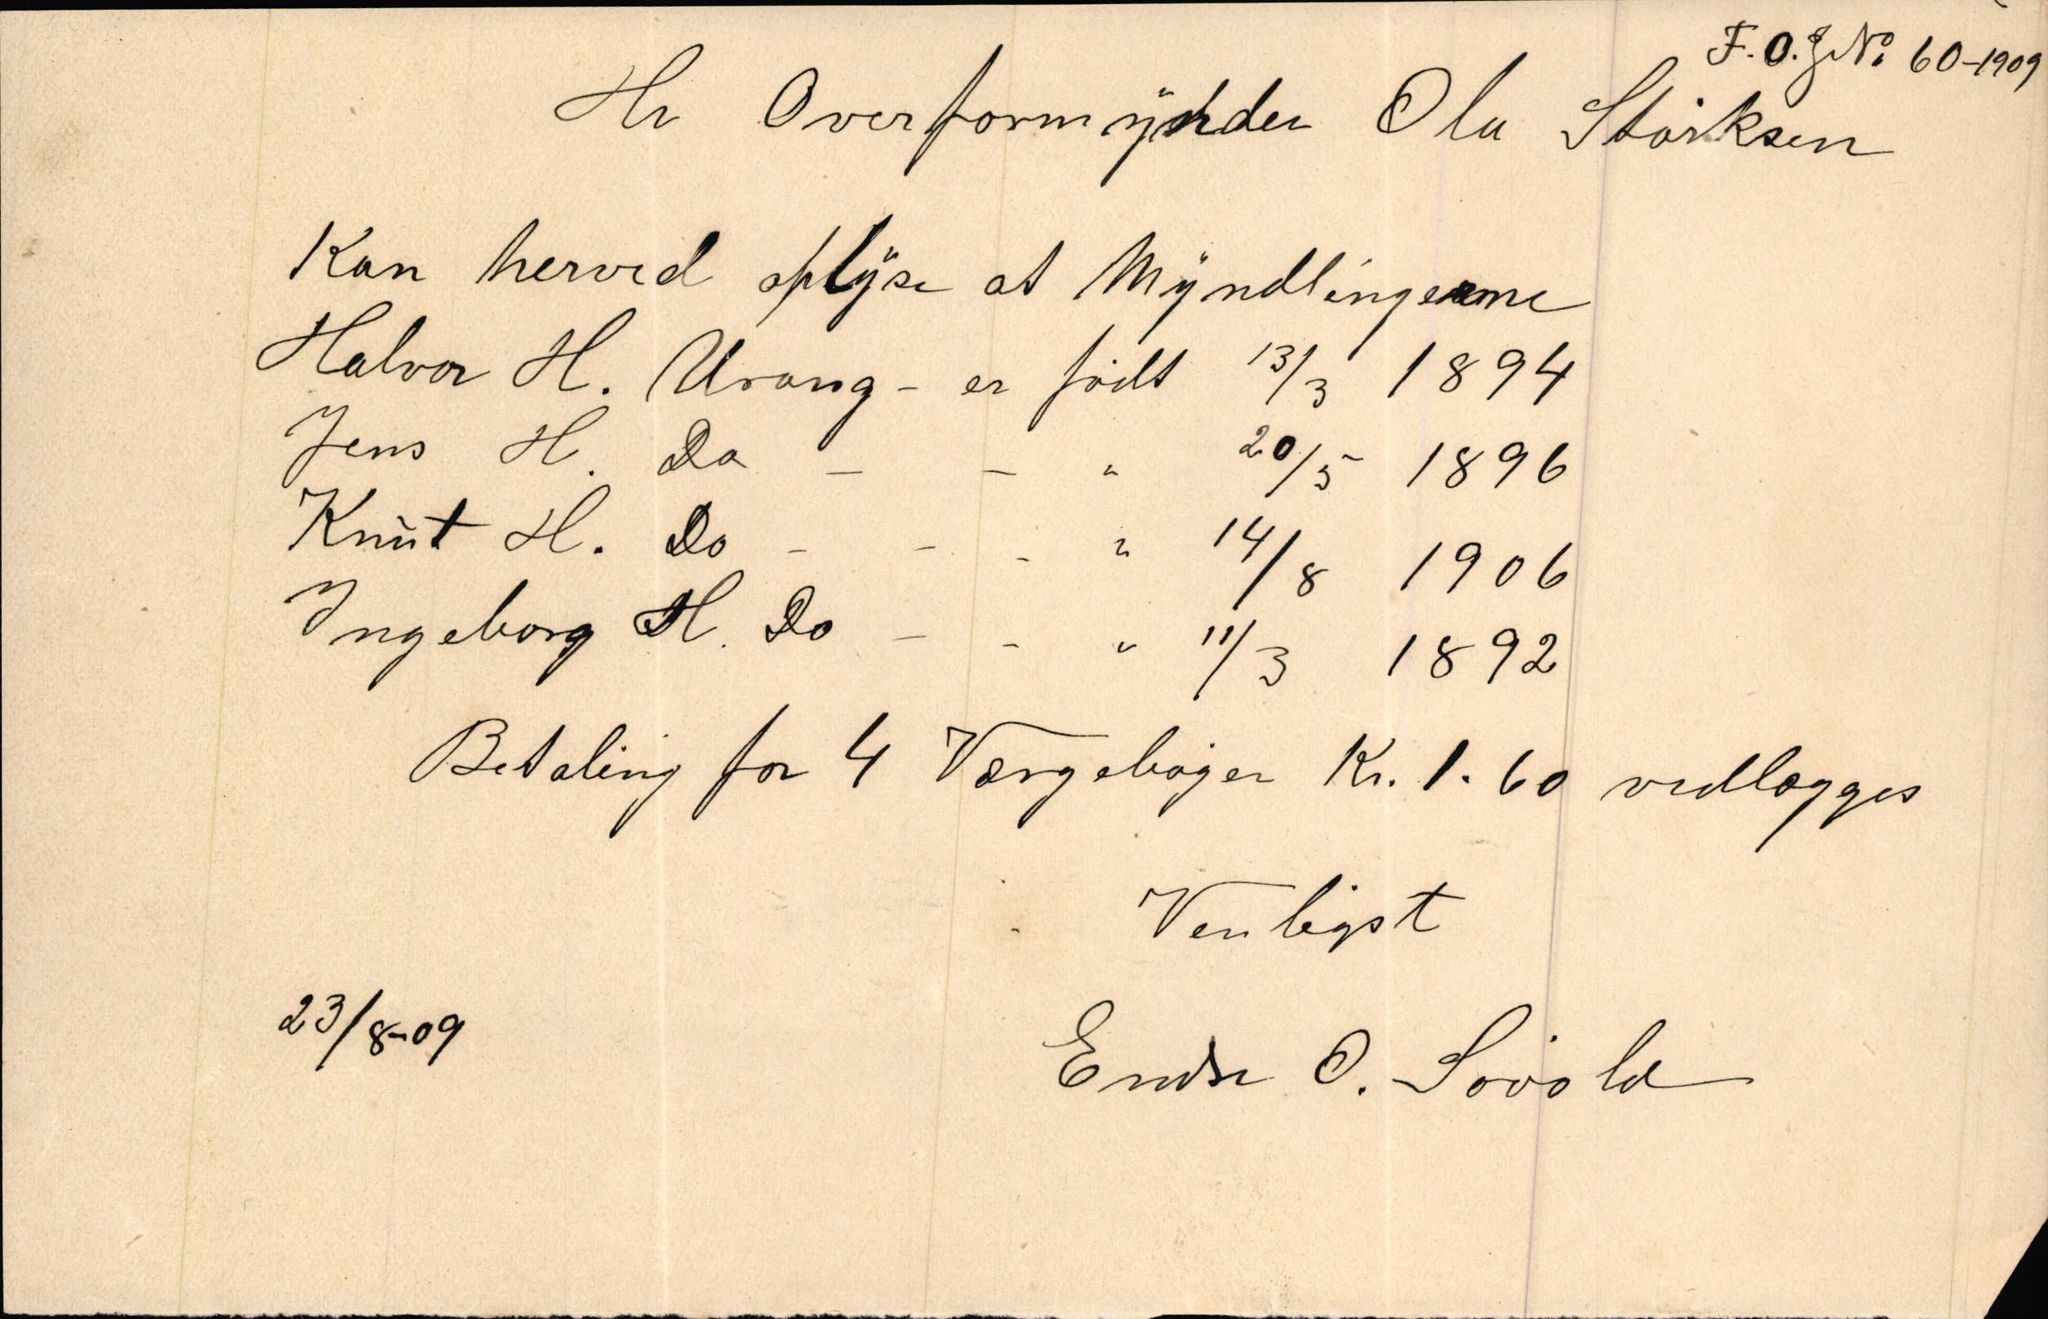 F.O.J.No. 60-1909
Hr Overformynder Ola Störksen
Kan herved oplyse at Myndlingerne
Halvor H. Urang - er födt 13/3 1894
Jens H. Do - - " 20/5 1896
Knut H. Do - - - " 14/8 1906
Ingeborg H. Do - - " 11/3 1892
Betaling for 4 Værgeböger Kr. 1.60 vedlægges
Venligst
23/8-09
Endre O. Sövold